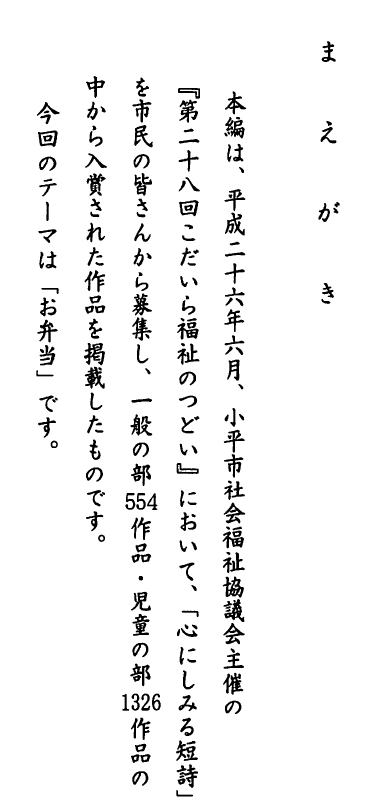 まえがき
本編は、平成二十六年六月、小平市社会福祉協議会主催の
『第二十八回こだいら福祉のつどい』において、「心にしみる短詩」
を市民の皆さんから募集し、一般の部554作品・児童の部1326作品の
中から入賞された作品を掲載したものです。
今回のテーマは「お弁当」です。